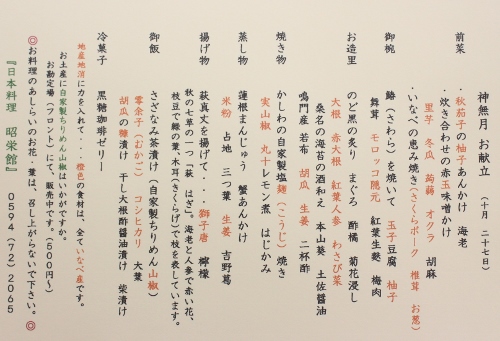 神無月 お献立 (十月 二十七日)
前菜
・秋茄子の柚子あんかけ 海老
・炊き合わせの赤玉味噌かけ
里芋 冬瓜 蒟蒻 オクラ 胡麻
・いなべの恵み焼き(さくらポーク 椎茸 お葱)
御椀 鰆(さわら)を焼いて 玉子豆腐 柚子
舞茸 モロッコ隠元 紅葉生麩 梅肉
お造里 のど黒の炙り まぐろ 酢橘 菊花浸し
大根 赤大根 紅葉人参 わさび菜
桑名の海苔の酒和え 本山葵 土佐醤油
鳴門産 若布 胡瓜 生姜 二杯酢
焼き物 かしわの自家製塩麹(こうじ)焼き
実山椒 丸十レモン煮 はじかみ
蒸し物 蓮根まんじゅう 蟹あんかけ
米粉 占地 三つ葉 生姜 吉野葛
揚げ物 萩真丈を揚げて・・・獅子唐 檸檬
秋の七草の一つ「萩 はぎ」。海老と人参で赤い花、
枝豆で緑の葉、木耳(きくらげ)で枝を表しています。
御飯 さざなみ茶漬け(自家製ちりめん山椒)
零余子(むかご) コシヒカリ 大葉
胡瓜の糠漬け 干し大根酢醤油漬け 柴漬け
冷菓子 黒糖珈琲ゼリー
地産地消に力を入れて・・・橙色の食材は、全ていなべ産です。
お土産に自家製ちりめん山椒はいかがですか。
お勘定場(フロント)にて、販売中です。(600円～)
◎お料理のあしらいのお花・葉は、召し上がらないで下さい。◎
『日本料理 昭栄館』 0594(72)2065